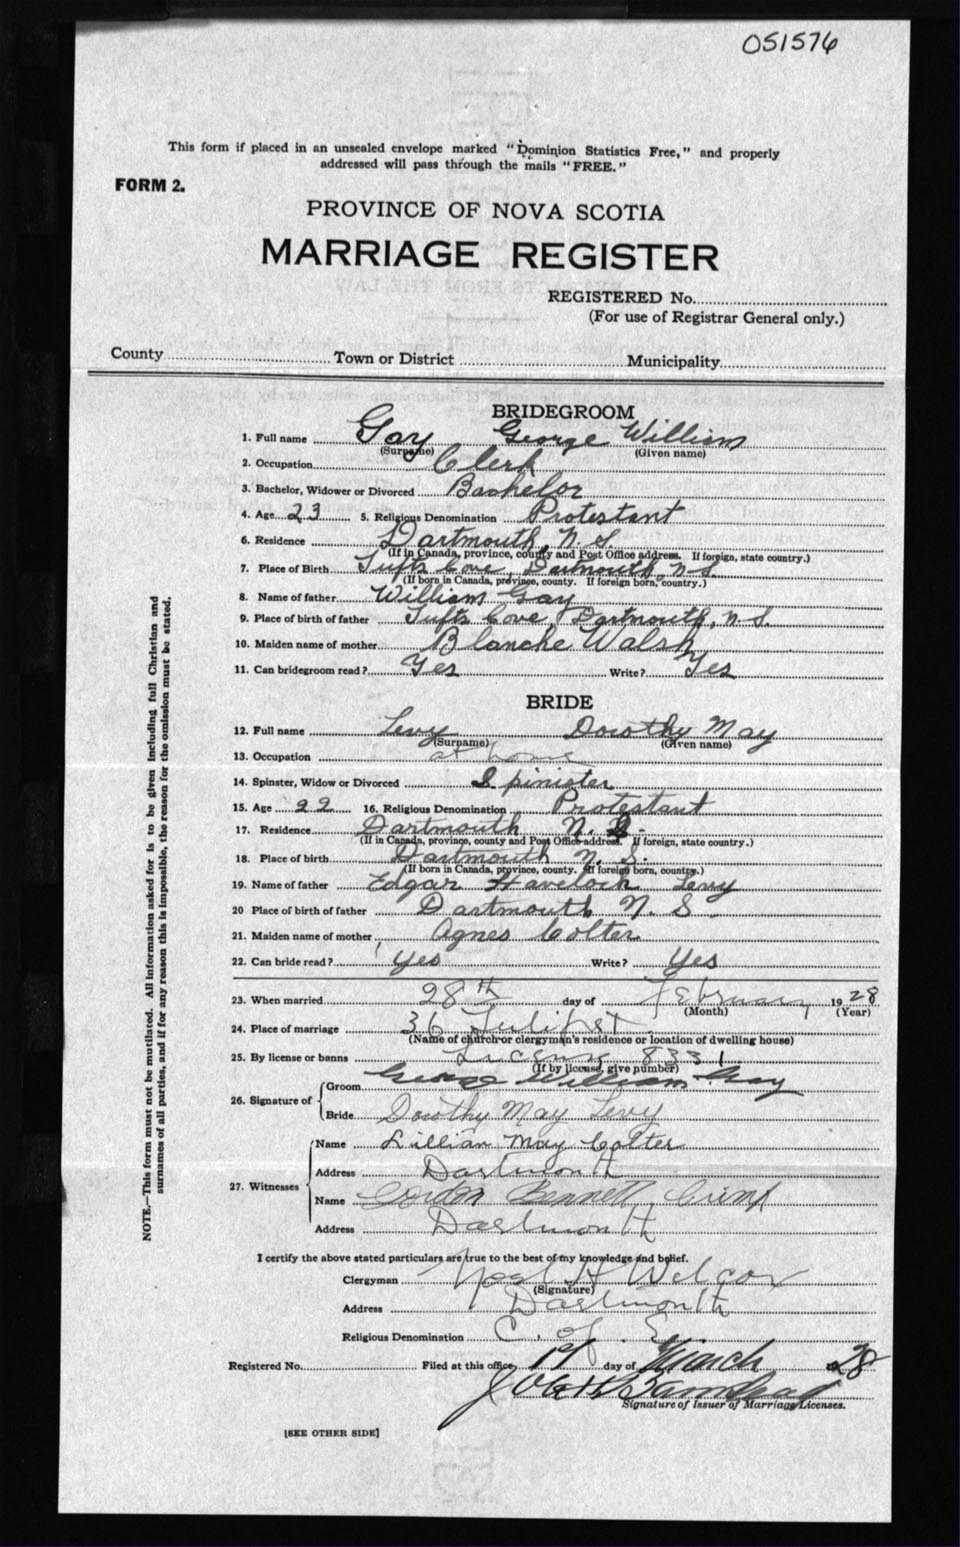 051576
This form if placed in an unsealed envelope marked "Dominion Statistics Free," and properly
addressed will pass through the mails "FREE."
FORM 2.
PROVINCE OF NOVA SCOTIA
MARRIAGE REGISTER
REGISTERED No.
(For use of Registrar General only.)
County Town or District Municipality
BRIDEGROOM
1. Full name Gay George William
(Surname) (Given name)
2. Occupation Clerk
3. Bachelor, Widower or Divorced Bachelor
4. Age 23 5. Religious Denomination Protestant
6. Residence Dartmouth, N. S.
(If in Canada, province, county and Post Office address. If foreign, state country.)
7. Place of Birth Tufts Cove, Dartmouth, N S.
(If born in Canada, province, county. If foreign born, country.)
8. Name of father William Gay
9. Place of birth of father Tufts Cove, Dartmouth, N. S.
10. Maiden name of mother Blanche Walsh
11. Can bridegroom read? Yes Write? Yes
BRIDE
12. Full name Levy Dorothy May
(Surname) (Given name)
13. Occupation at home
14. Spinster, Widow or Divorced Spinister
15. Age 22 16. Religious Denomination Protestant
17. Residence Dartmouth N. S.
(If in Canada, province, county and Post Office address. If foreign, state country.)
18. Place of birth Dartmouth N. S.
(If born in Canada, province, county. If foreign born, country.)
19. Name of father Edgar Havelock Levy
20 Place of birth of father Dartmouth N. S
21. Maiden name of mother Agnes Colter
22. Can bride read? Yes Write? Yes
23. When married 28th day of February 1928
(Month) (Year)
24. Place of marriage 36 Tulip St
(Name of church or clergyman's residence or location of dwelling house)
25. By license or banns License 8331
(If by license, give number)
26. Signature of
Groom George William Gay
Bride Dorothy May Levy
27. Witnesses
Name Lillian May Colter
Address Dartmouth
Name Gordon Bennett
Address Dartmouth
I certify the above stated particulars are true to the best of my knowledge and belief.
Clergyman Noel H Wilcox
(Signature)
Address Dartmouth
Religious Denomination C. of E
Registered No. Filed at this office, 1st day of March 28
Signature of Issuer of Marriage Licenses.
[SEE OTHER SIDE]
NOTE.—This form must not be mutilated. All information asked for is to be given including full Christian and
surnames of all parties, and if for any reason this is impossible, the reason for the omission must be stated.